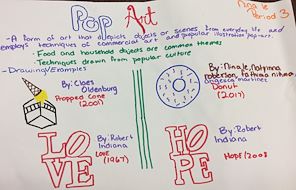 Pop Art
Period 3
- A form of art that depicts objects or scenes from everyday life and
employs techniques of commercial art and popular illustration
• Food and household objects are common themes
• Techniques drawn from popular culture
- Drawing/Examples
By: Claes
Oldenburg
Dropped Cone
(2001)
Donut
(2017)
LOVE
By: Robert
Indiana
LOVE
(1967)
HOPE
By: Robert
Indiana
HOPE/2008